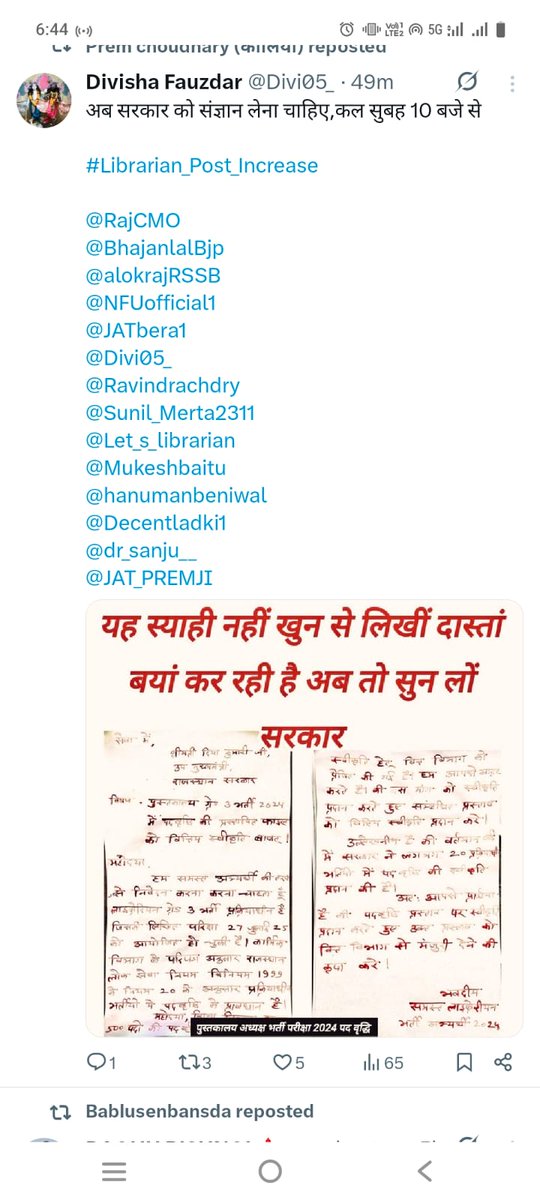 6:44
Vo)) 1
LTE2
5G
Prem choudhary (कालिया) reposted
Divisha Fauzdar @Divi05_ · 49m
अब सरकार को संज्ञान लेना चाहिए,कल सुबह 10 बजे से
#Librarian_Post_Increase
@RajCMO
@BhajanlalBjp
@alokrajRSSB
@NFUofficial1
@JATbera1
@Divi05_
@Ravindrachdry
@Sunil_Merta2311
@Let_s_librarian
@Mukeshbaitu
@hanumanbeniwal
@Decentladki1
@dr_sanju__
@JAT_PREMJI
यह स्याही नहीं खुन से लिखीं दास्तां
बयां कर रही है अब तो सुन लों
सरकार
सेवा में,
श्रीमती दिया कुमारी जी,
उप मुख्यमंत्री,
राजस्थान सरकार
विषय - पुस्तकालय ग्रेड 3 भर्ती 2024
में पदवृद्धि की प्रस्तावित फाइल
को वित्तिय स्वीकृति बाबत।
महोदया,
हम समस्त अभ्यर्थी
से निवेदन करना करना चाहता है
लाइब्रेरियन ग्रेड 3 भर्ती प्रक्रियाधीन है
जिसकी लिखित परीक्षा 27 जुलाई 25
को आयोजित हो चुकी है। कार्मिक
विभाग के परिपत्र अनुसार राजस्थान
लोक सेवा नियम विनियम 1999
के नियम 20 के अनुसार प्रक्रियाधीन
भर्तियों में पदवृद्धि का प्रावधान है।
महोदया, शिक्षा
500 पदों की
स्वीकृति हेतु वित्त विभाग को
प्रेषित की गई है। हम आपसे
करते हैं की इस मांग को स्वीकृति
प्रदान करते हुए सम्बंधित प्रस्ताव
को वित्तिय स्वीकृति प्रदान करें।
उल्लेखनीय है की वर्तमान
में सरकार ने लगभग 20
भर्तियों में पदवृद्धि की स्वीकृति
प्रदान की है।
अतः आपसे प्रार्थना
है की पदवृद्धि प्रस्ताव पर
प्रदान करते हुए उक्त प्रस्ताव को
वित्त विभाग से मंजूरी देने की
कृपा करें।
भवदीय
समस्त लाइब्रेरीयन
भर्ती अभ्यर्थी 2024
पुस्तकालय अध्यक्ष भर्ती परीक्षा 2024 पद वृद्धि
1
3
5
65
Bablusenbansda reposted